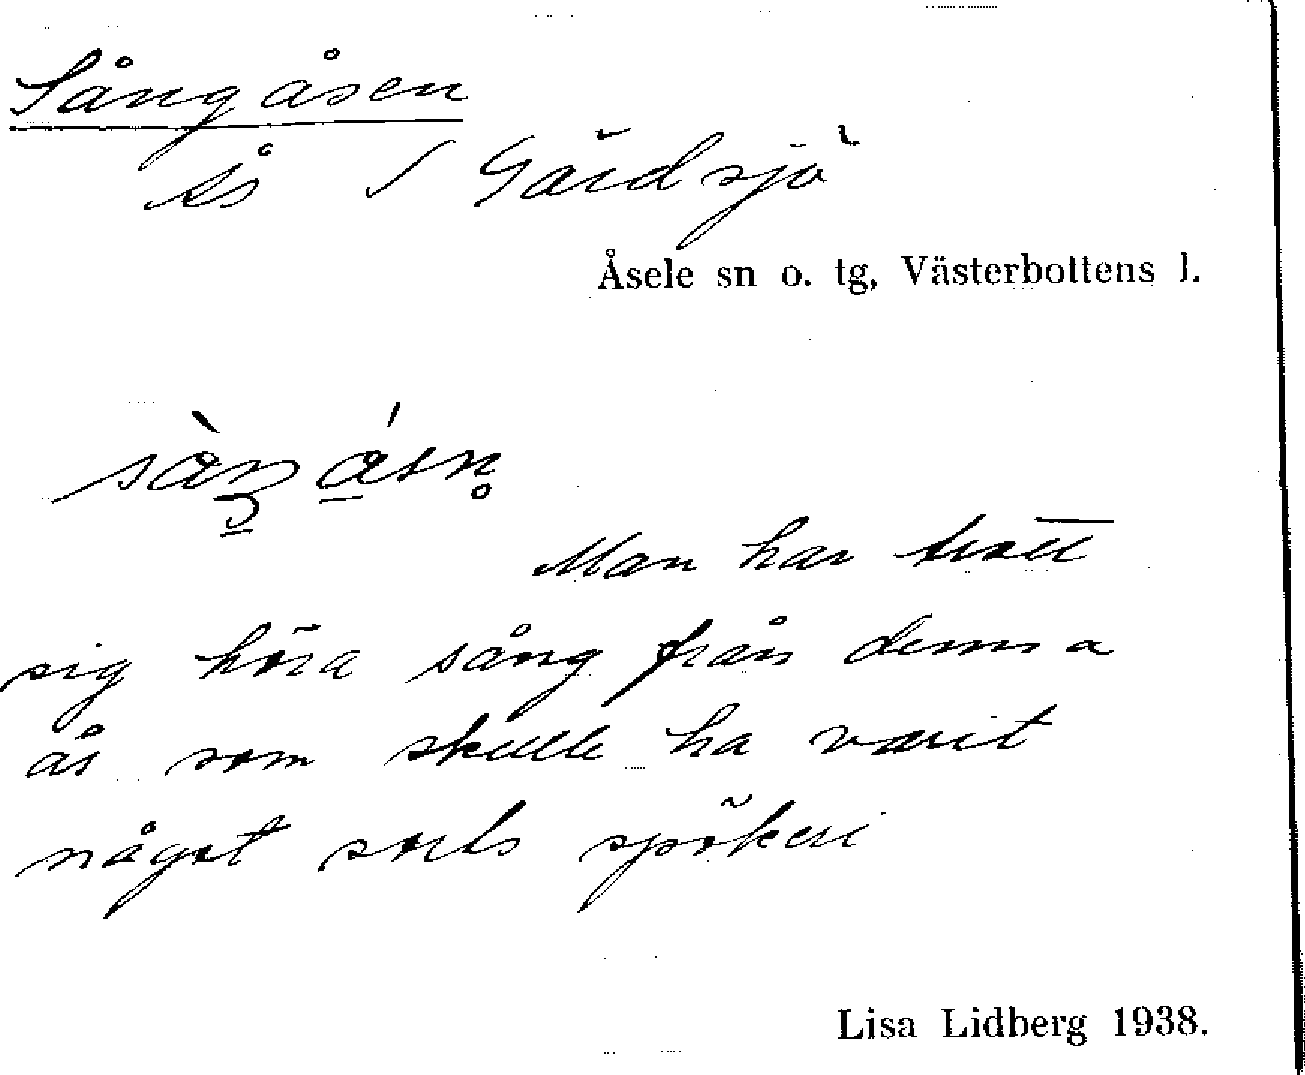 Sångåsen
Ås i Gärdsjö
Åsele sn o. tg, Västerbottens l.
Man har trott
sig höra sång från denna
ås som skulle ha varit
något sorts spökeri
Lisa Lidberg 1938.